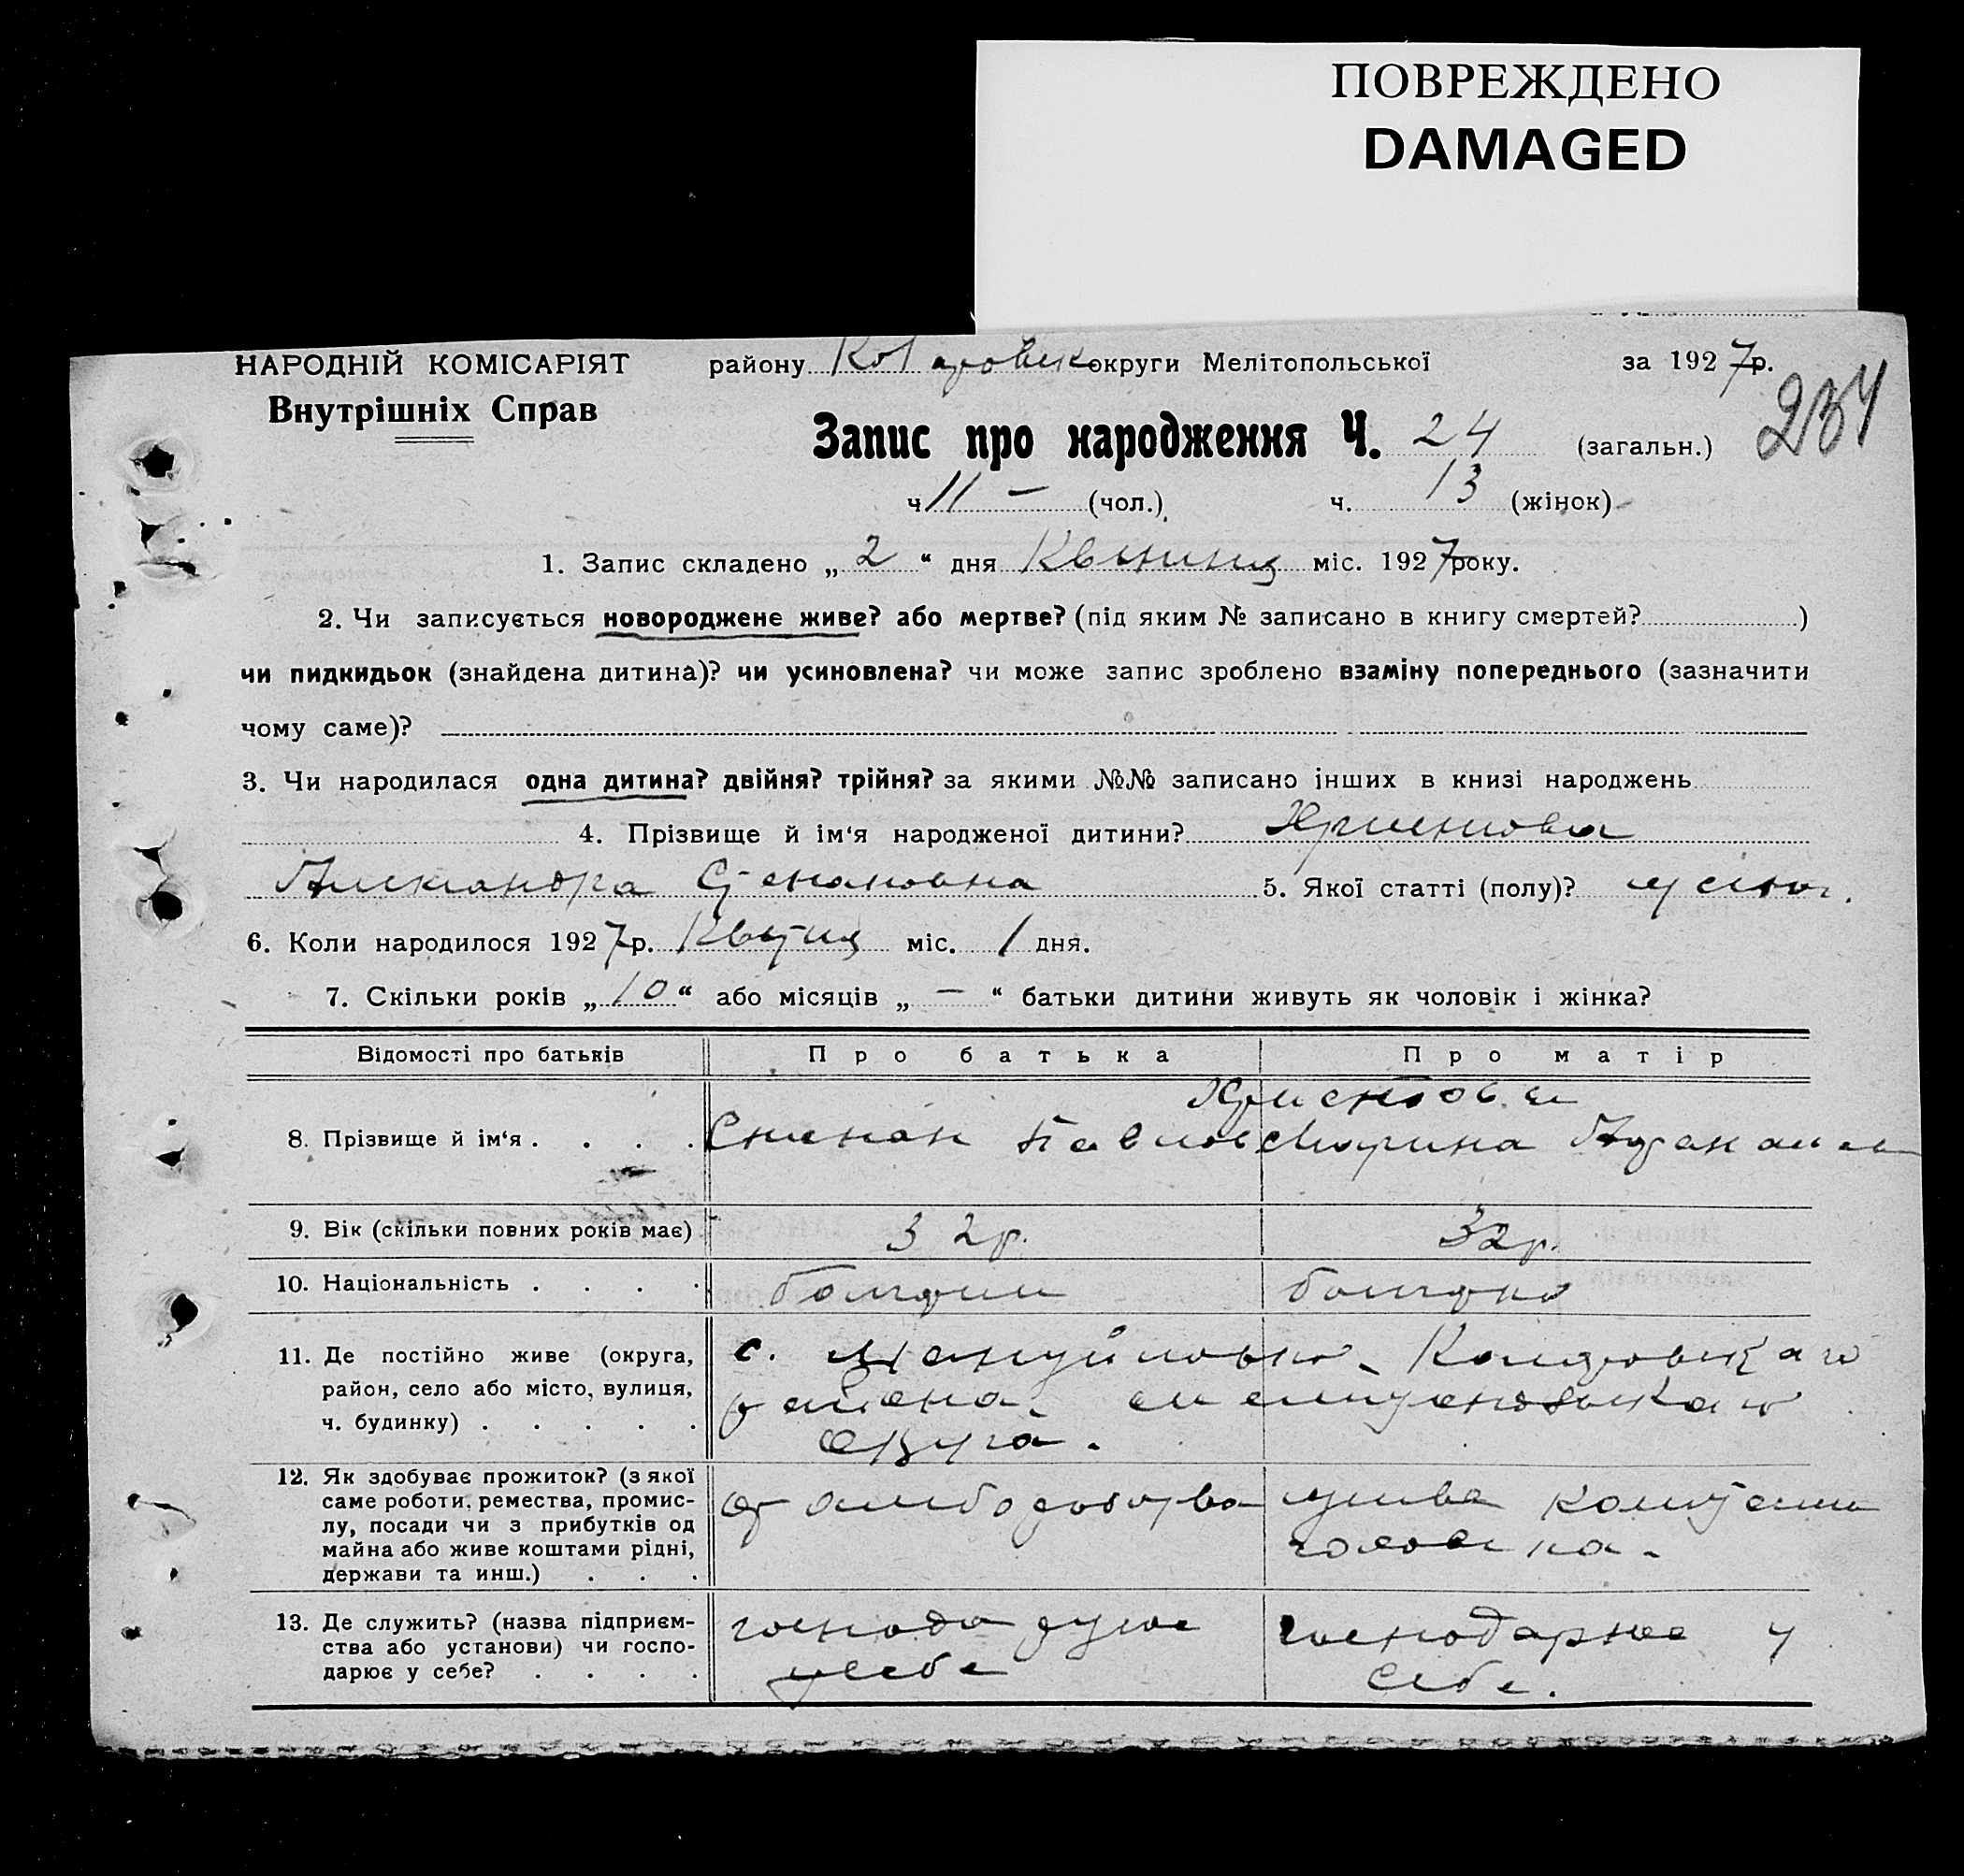 ПОВРЕЖДЕНО
DAMAGED
НАРОДНІЙ КОМІСАРІЯТ
Внутрішніх Справ
району округи Мелітопольської за 1927 р.
234
Запис про народження Ч. 24 (загальн.)
ч 11 — (чол.) ч. 13 (жінок)
1. Запис складено „ 2 “ дня Квітня міс. 1927 року.
2. Чи записується новороджене живе? або мертве? (під яким № записано в книгу смертей? )
чи пидкидьок (знайдена дитина)? чи усиновлена? чи може запис зроблено взаміну попереднього (зазначити
чому саме)?
3. Чи народилася одна дитина? двійня? трійня? за якими №№ записано інших в книзі народжень
4. Прізвище й ім‘я народженої дитини?
Александра Степановна 5. Якої статті (полу)?
6. Коли народилося 1927 р. Квітня міс. 1 дня.
7. Скільки років „ 10 “ або місяців „ — “ батьки дитини живуть як чоловік і жінка?
Відомості про батьків Про батька Про матір
8. Прізвище й ім‘я . . . . Степан Павлов Марина
9. Вік (скільки повних років має) 32 р. 32 р.
10. Національність . . . . болгарин болгарка
11. Де постійно живе (округа,
район, село або місто, вулиця,
ч. будинку) . . . . .
с. Мануйловка
района
округа.
12. Як здобуває прожиток? (з якої
саме роботи, ремества, промис-
лу, посади чи з прибутків од
майна або живе коштами рідні,
держави та инш.) . . .
живе коштами
чоловіка.
13. Де служить? (назва підприєм-
ства або установи) чи госпо-
дарює у себе? . . . .
господарує
у себе
господарює у
себе.